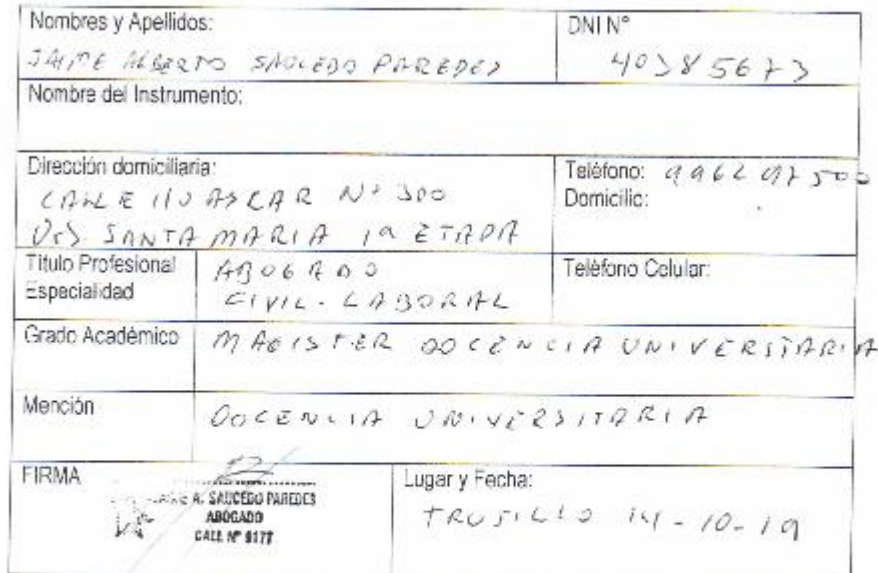 Nombres y Apellidos:
DNI N°
JAIME ALBERTO SAUCEDO PAREDES
40385673
Nombre del Instrumento:
Dirección domiciliaria:
Teléfono: 996297500
Domicilio:
CALLE HUASCAR N° 300
URB SANTA MARIA 1a ETAPA
Título Profesional
Especialidad
ABOGADO
CIVIL - LABORAL
Teléfono Celular:
Grado Académico
MAGISTER DOCENCIA UNIVERSITARIA
Mención
DOCENCIA UNIVERSITARIA
FIRMA
A. SAUCEDO PAREDES
ABOGADO
CALL N° 9177
Lugar y Fecha:
TRUJILLO 14-10-19